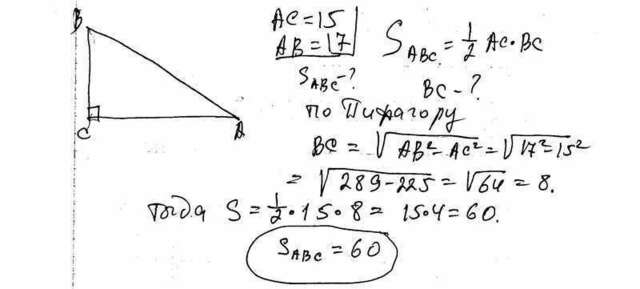 B
C
A
AC = 15
AB = 17
S_ABC - ?
S_ABC = 1/2 AC · BC
BC - ?
по Пифагору
BC = √(AB² - AC²) = √(17² - 15²)
= √(289 - 225) = √64 = 8.
тогда S = 1/2 · 15 · 8 = 15 · 4 = 60.
S_ABC = 60